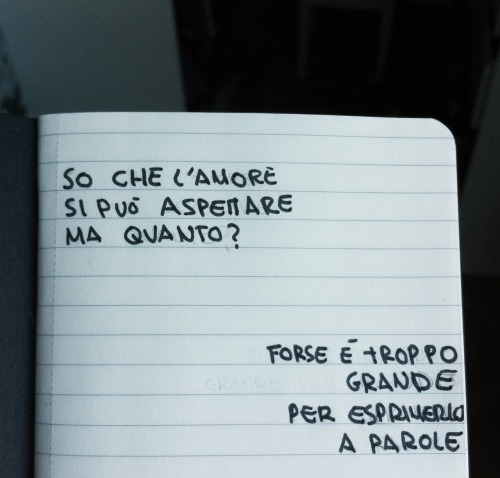 SO CHE L'AMORE
SI PUÒ ASPETTARE
MA QUANTO?
FORSE È TROPPO
GRANDE
PER ESPRIMERLO
A PAROLE